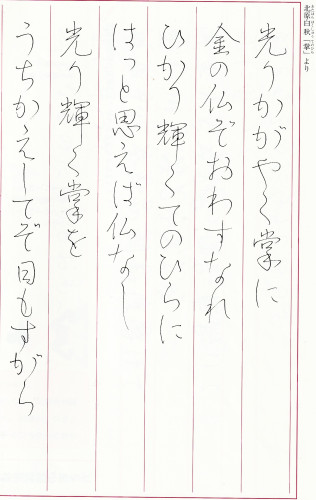 北原白秋「掌」より
光りかがやく掌に
金の仏ぞおわすなれ
ひかり輝くてのひらに
はっと思えば仏なし
光り輝く掌を
うちかえしてぞ日もすがら